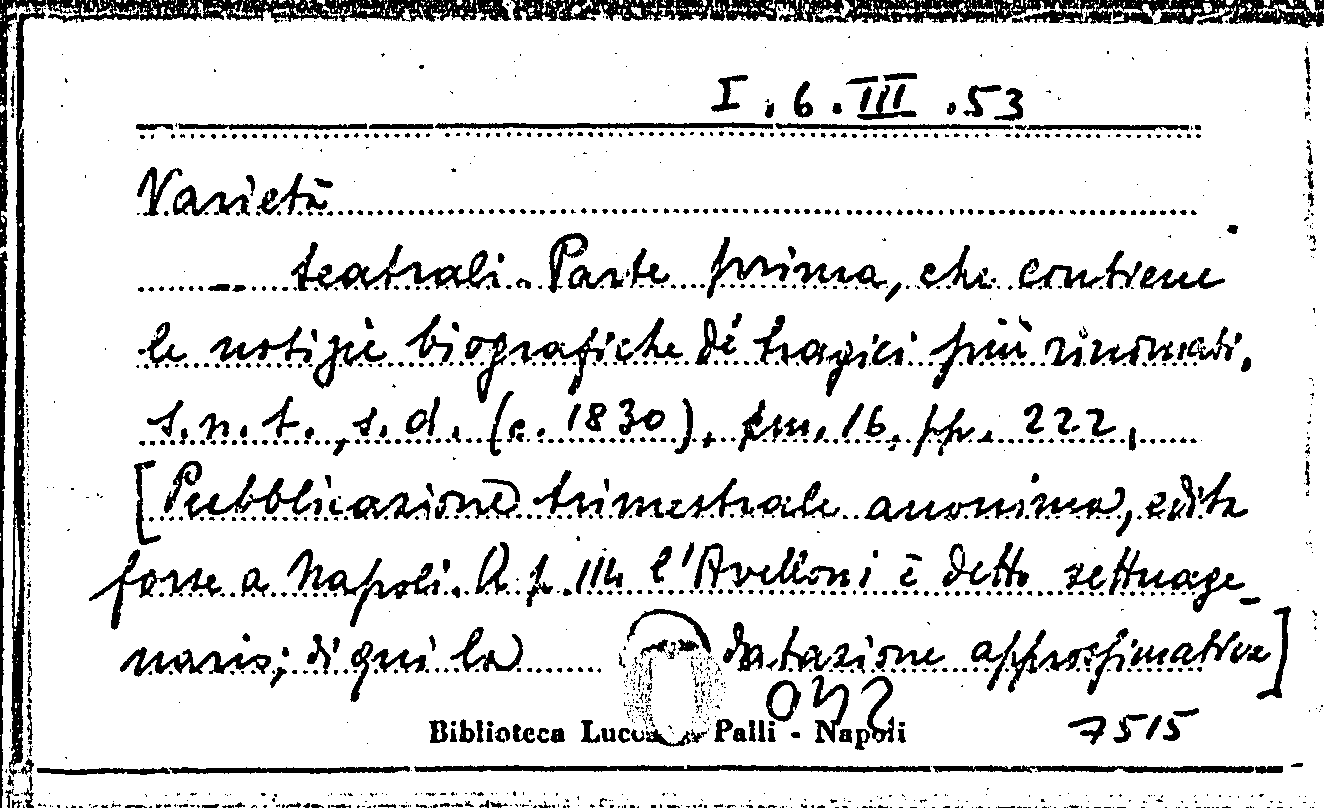 I.6.III.53
Varietà
teatrali. Parte prima, che contiene
le notizie biografiche de' tragici più rinomati,
s.n.t., s.d. (c. 1830), cm. 16, pp. 222,
[Pubblicazione trimestrale anonima, edita
forse a Napoli. A p. 114 l'Avelloni è detto settuage_
nario; di qui la datazione approssimativa]
042
Biblioteca Lucc Palli - Napoli
7515